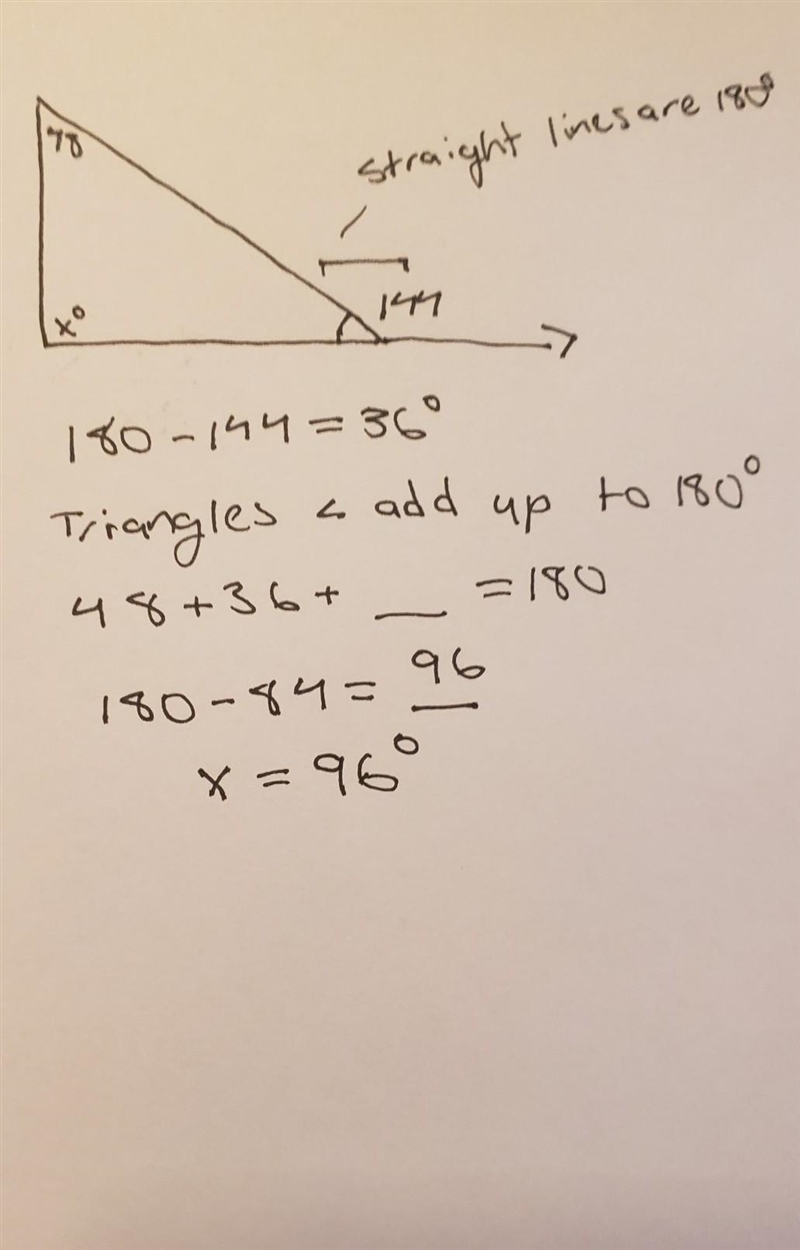 straight lines are 180°
48
144
x°
180 - 144 = 36°
Triangles < add up to 180°
48 + 36 + __ = 180
180 - 84 = 96
x = 96°